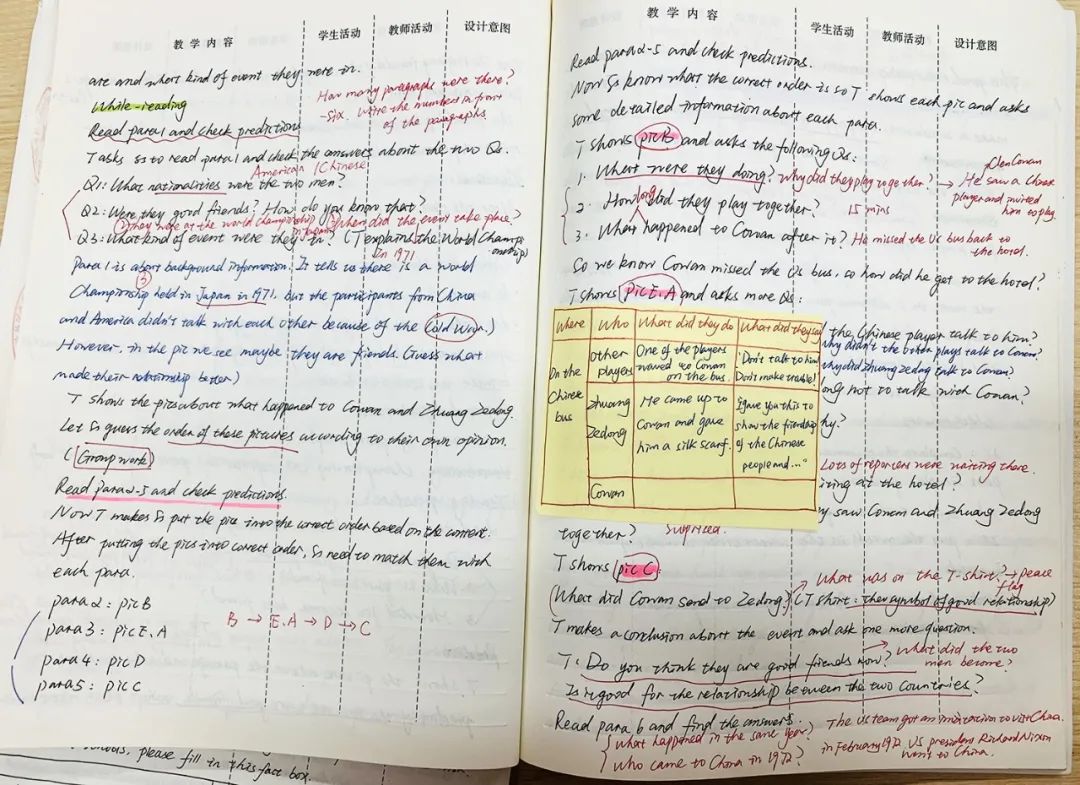 教 学 内 容 学生活动 教师活动 设计意图
are and what kind of event they were in.
While-reading
How many paragraphs were there?
-Six. Write the numbers in front
of the paragraphs
Read para1 and check predictions
T asks Ss to read para1 and check the answers about the two Qs.
American / Chinese
Q1: What nationalities were the two men?
Q2: Were they good friends? How do you know that?
① They were at the world championship ② When did the event take place?
in Japan
Q3: What kind of event were they in? (T explains the World Championship)
In 1971
Para 1 is about background information. It tells us there is a world
③
Championship held in Japan in 1971, but the participants from China
and America didn't talk with each other because of the Cold War.)
However, in the pic we see maybe they are friends. (Guess what
made their relationship better)
T shows the pics about what happened to Cowan and Zhuang Zedong.
Let Ss guess the order of these pictures according to their own opinion.
(Group work)
Read para2-5 and check predictions.
Now T makes Ss put the pics into the correct order based on the content.
After putting the pics into correct order, Ss need to match them with
each para.
para2: pic B
para3: pic E.A
B → E.A → D → C
para4: pic D
para5: pic C
please fill in this fact box.
教 学 内 容 学生活动 教师活动 设计意图
Read para2-5 and check predictions.
Now Ss know what the correct order is so T shows each pic and asks
some detailed information about each para.
T shows pic B and asks the following Qs:
Glen Cowan
1. What were they doing? Why did they play together? → He saw a Chinese
player and invited
him to play
2. How long did they play together? 15 mins
3. What happened to Cowan after it? He missed the US bus back to
the hotel.
So we know Cowan missed the US bus, so how did he get to the hotel?
T shows pic E.A and asks more Qs:
Where Who What did they do What did they say
On the Chinese bus
other players
One of the players
waved to Cowan
on the bus.
"Don't talk to him
Don't make trouble!
Zhuang Zedong
He came up to
Cowan and gave
him a silk scarf.
I gave you this to
show the friendship
of the Chinese
people and..."
Cowan
the Chinese player talk to him?
why didn't the other plays talk to Cowan?
why did Zhuang Zedong talk to Cowan?
not to talk with Cowan?
hy?
Lots of reporters were waiting there.
at the hotel?
saw Cowan and Zhuang Zedong
together? Surprised.
T shows pic C.
What was on the T-shirt → peace
flag
(What did Cowan send to Zedong?) (T shirt: the symbol of good relationship)
T makes a conclusion about the event and ask one more question.
→ What did the two
men become?
T: Do you think they are good friends now?
Is it good for the relationship between the two countries?
Read para 6 and find the answers.
What happened in the same year? The US team got an invitation to visit China.
Who came to China in 1972? in February 1972 US president Richard Nixon
went to China.